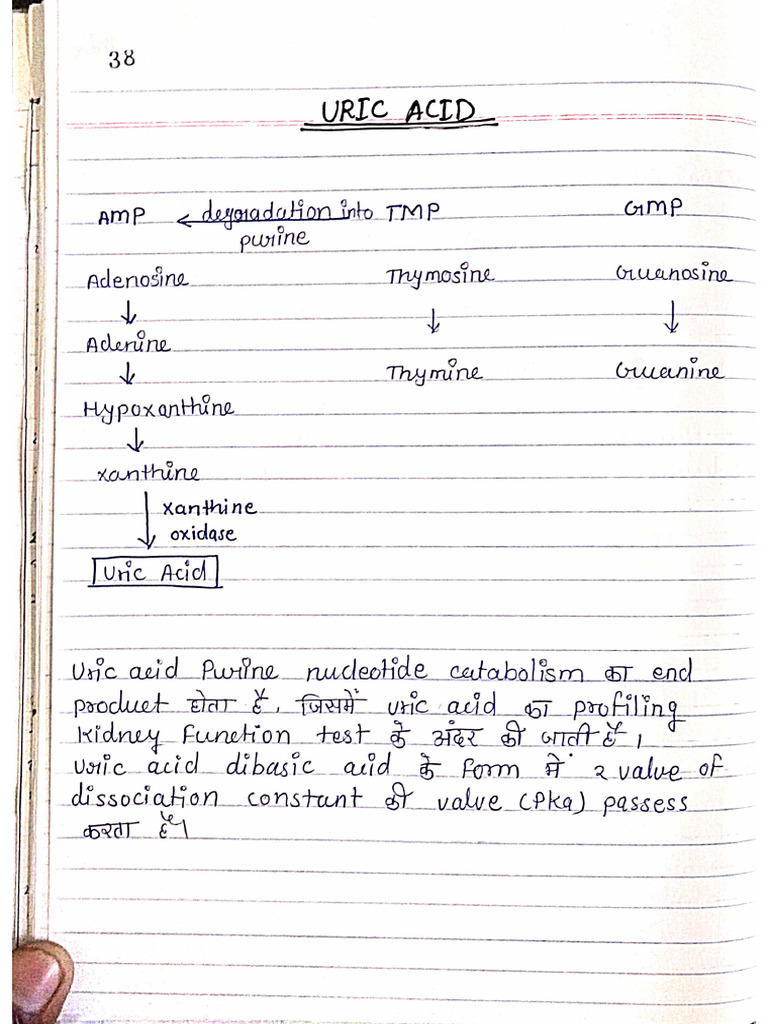 38
URIC ACID
AMP ← degradation into TMP GMP
purine
Adenosine Thymosine Guanosine
↓ ↓ ↓
Adenine
↓ Thymine Guanine
Hypoxanthine
↓
xanthine
↓ xanthine
oxidase
Uric Acid
Uric acid Purine nucleotide catabolism का end
product होता है, जिसमें uric acid का profiling
Kidney Function test के अंदर की जाती हैं।
Uric acid dibasic acid के form में 2 value of
dissociation constant की value (Pka) passess
करता है।